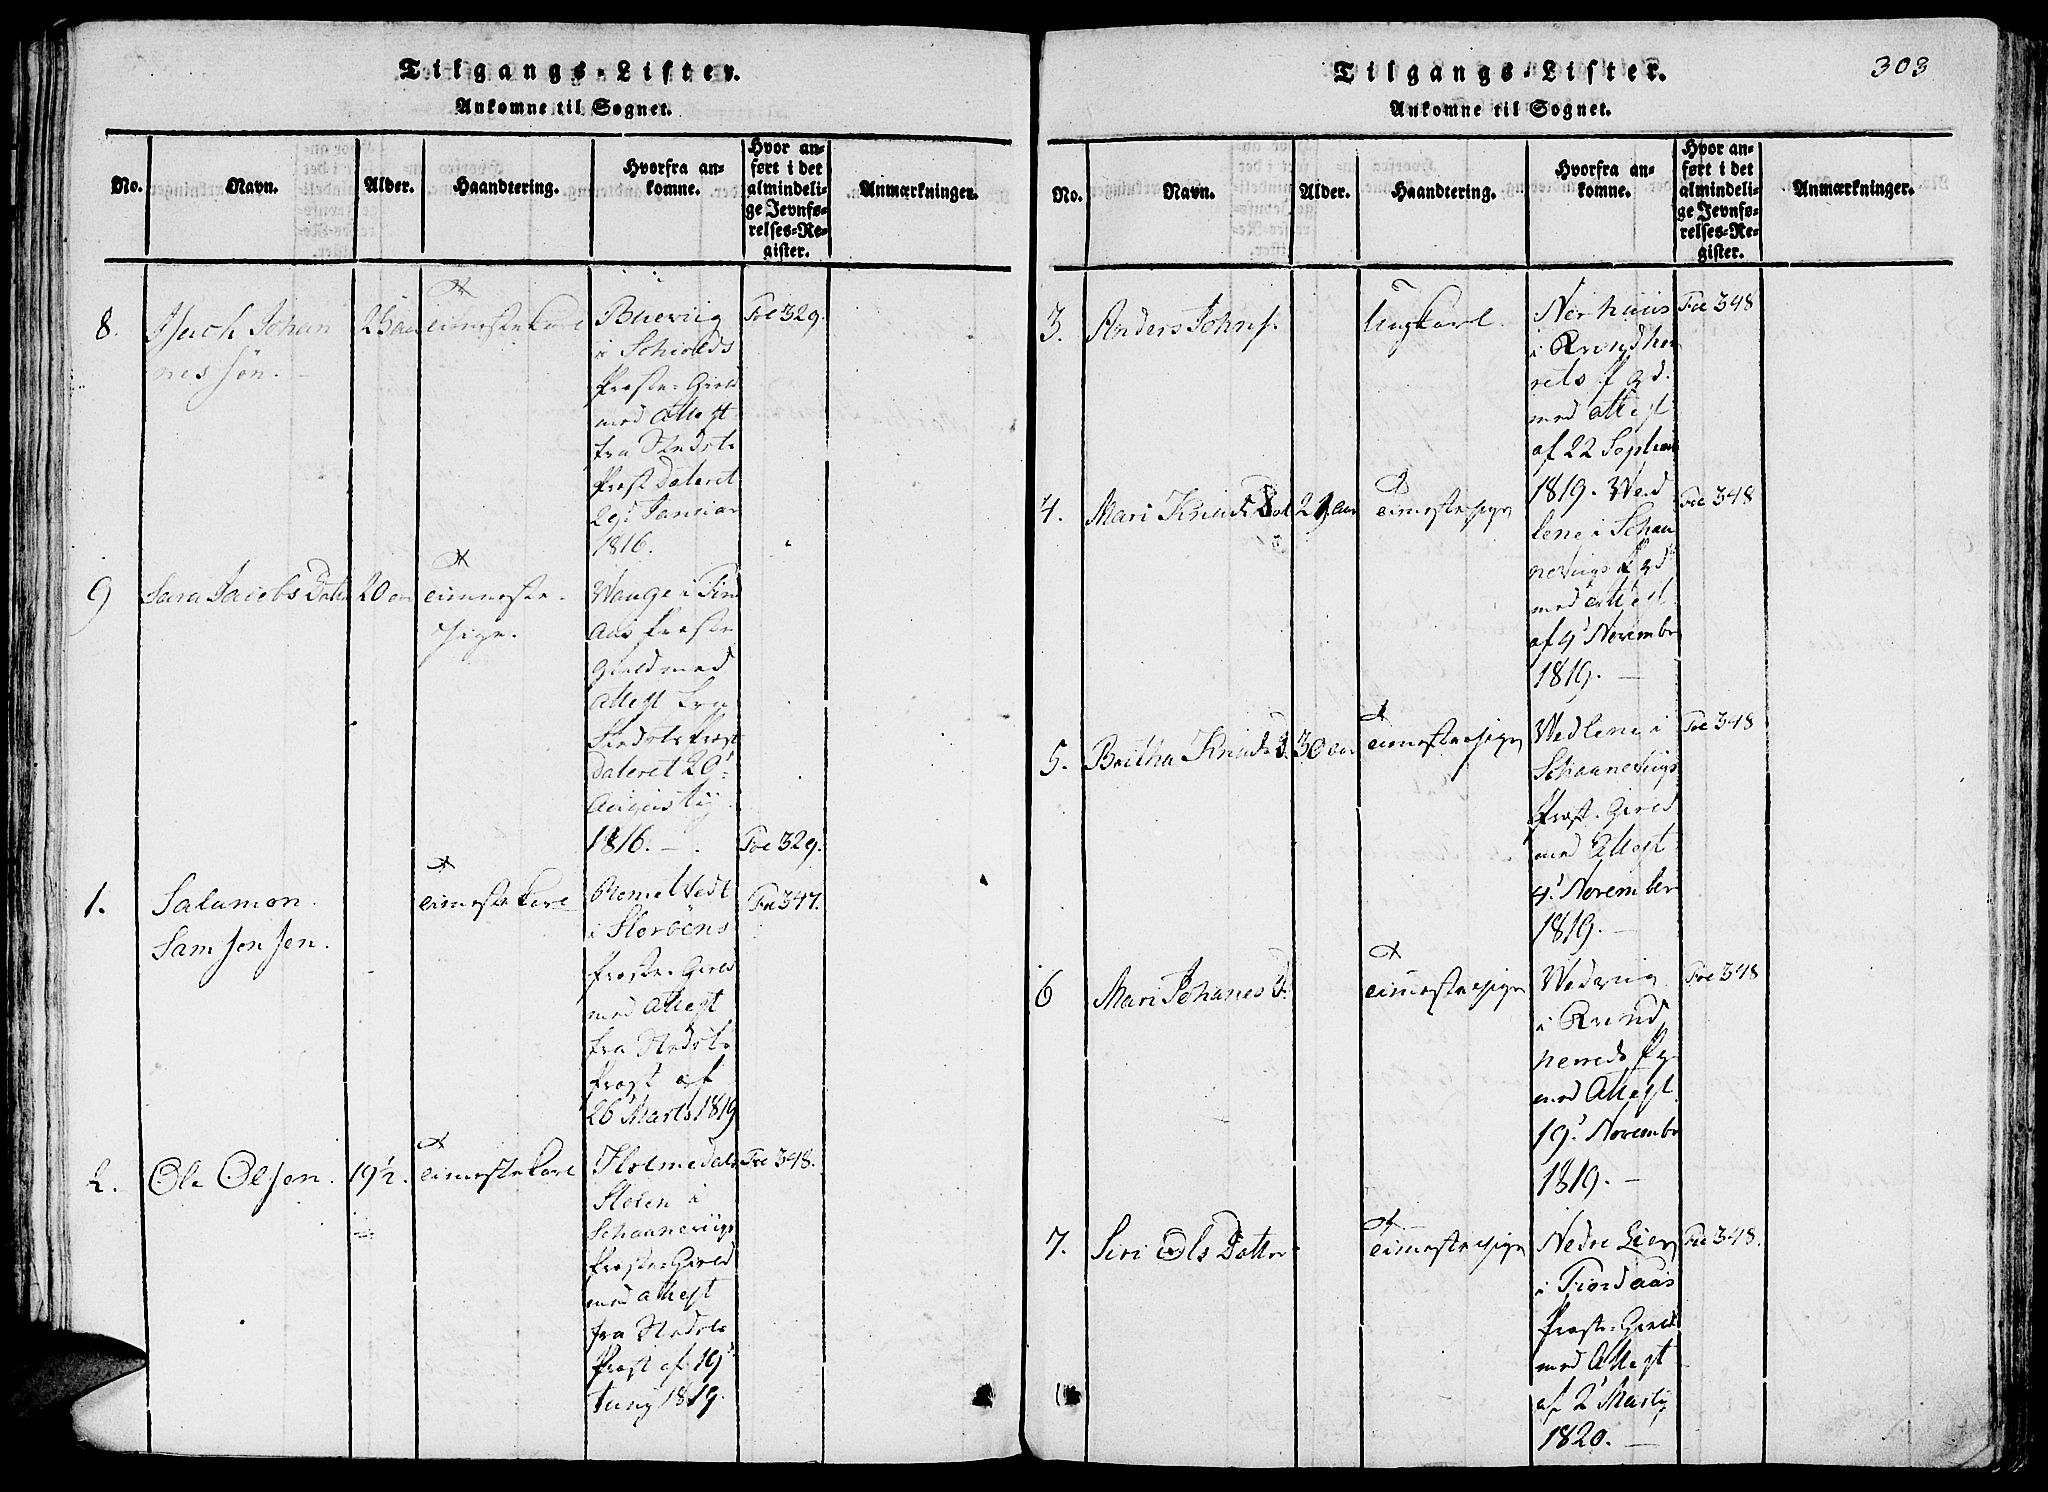 Tilgangs-Lister.
Ankomne til Sognet.
No.
Navn.
Alder.
Haandtering.
Hvorfra an-
komne.
Hvor an-
ført i det
almindeli-
ge Jevnfø-
relses-Re-
gister.
Anmærkninger.
8.
Johan
nessøn.
Bueviig
i Schiolds
Præste-Gield
med Attest
fra Stedets
Præst dateret
29d Januar
1816.
Foe 329.
9
Sara Jacobs Datter
20 aar
pige.
Vange i Fin
aas Præste
Gield med
Attest fra
Stedets Præst
dateret 20
Augusty
1816. —
Foe 329.
1.
Salamon
Samsonsen.
tienestekarl
i Storöens
Præste-Gield
med Attest
fra Stedets
Præst af
26' Marts 1819
Foe 347.
2.
Ole Olsen.
19½.
tienestekarl
Holmedals
Stolen i
Schaaneviigs
Præste-Gield
med Attest
fra Stedets
Præst af 19
Juny 1819.
Foe 348.
Tilgangs-Lister.
303
Ankomne til Sognet.
No.
Navn.
Alder.
Haandtering.
Hvorfra an-
komne.
Hvor an-
ført i det
almindeli-
ge Jevnfø-
relses-Re-
gister.
Anmærkninger.
3.
Anders Johns.
Ungkarl.
Nerhuus
i Qvindher
rets Pgd.
med Attest
af 22 Septem
1819.
Foe 348
4.
Mari Knuds Dat
21 aar
tienestepige
Ved
lene i Schaa
neviigs Pgd
med Attest
af 4' Novembr
1819. —
Foe 348
5.
Britha Knuds D.
30 aar
tienestepige
Vedlene i
Schaaneviigs
Præst. Gield
med Attest
4' November
1819. —
Foe 348
6
Mari Johanes D.
tienestepige
i Qvind
herreds Pg.
med Attest
19' Novembr
1819. —
Foe 348
7.
Siri Ols Datter
tienestepige
Nedre Lier
i Fiordaas
Præste-Gield
med Attest
af 2' Marty
1820. —
Foe 348.